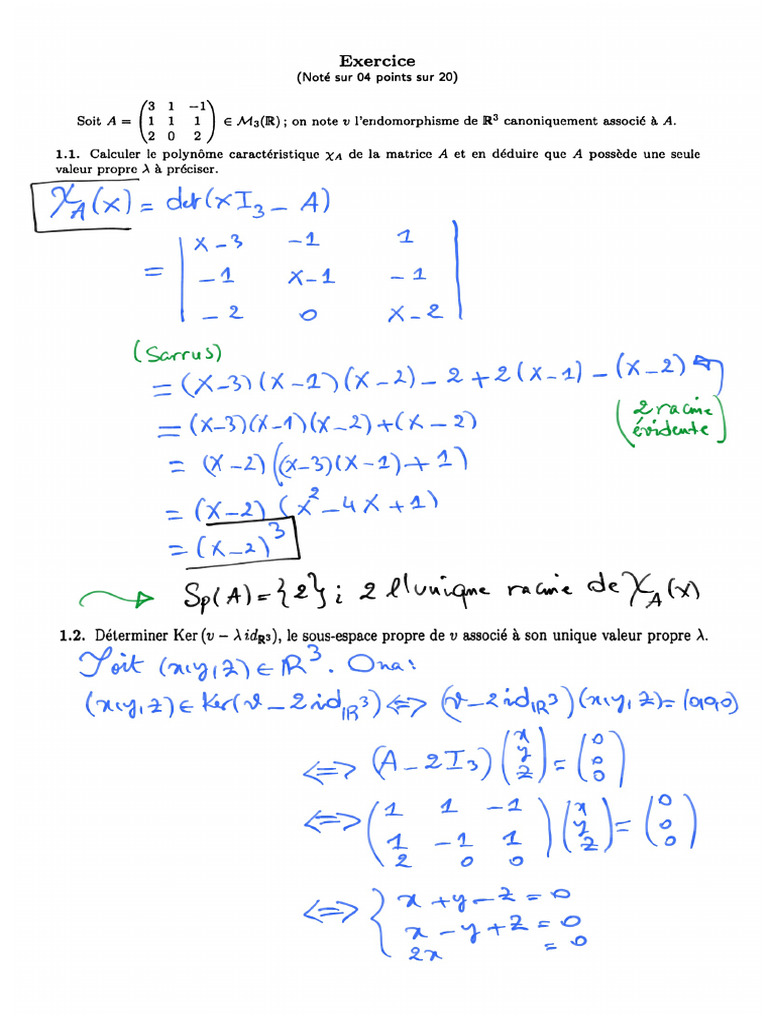 Exercice
(Noté sur 04 points sur 20)
Soit A = \begin{pmatrix} 3 & 1 & -1 \\ 1 & 1 & 1 \\ 2 & 0 & 2 \end{pmatrix} ∈ M₃(ℝ) ; on note v l'endomorphisme de ℝ³ canoniquement associé à A.
1.1. Calculer le polynôme caractéristique χ_A de la matrice A et en déduire que A possède une seule
valeur propre λ à préciser.
χ_A(X) = det(X I₃ – A)
= \begin{vmatrix} X-3 & -1 & 1 \\ -1 & X-1 & -1 \\ -2 & 0 & X-2 \end{vmatrix}
(Sarrus)
= (X-3)(X-1)(X-2) - 2 + 2(X-1) - (X-2)
= (X-3)(X-1)(X-2) + (X-2)
(2 racine
évidente)
= (X-2)((X-3)(X-1)+1)
= (X-2)(X² - 4X + 1)
= (X-2)³
Sp(A) = {2} ; 2 l'unique racine de χ_A(X)
1.2. Déterminer Ker (v – λ id_ℝ³), le sous-espace propre de v associé à son unique valeur propre λ.
Soit (x,y,z) ∈ ℝ³. On a :
(x,y,z) ∈ Ker(v - 2 id_ℝ³) ⇔ (v - 2 id_ℝ³)(x,y,z) = (0,0,0)
⇔ (A - 2I₃) \begin{pmatrix} x \\ y \\ z \end{pmatrix} = \begin{pmatrix} 0 \\ 0 \\ 0 \end{pmatrix}
⇔ \begin{pmatrix} 1 & 1 & -1 \\ 1 & -1 & 1 \\ 2 & 0 & 0 \end{pmatrix} \begin{pmatrix} x \\ y \\ z \end{pmatrix} = \begin{pmatrix} 0 \\ 0 \\ 0 \end{pmatrix}
⇔ { x + y - z = 0
x - y + z = 0
2x = 0